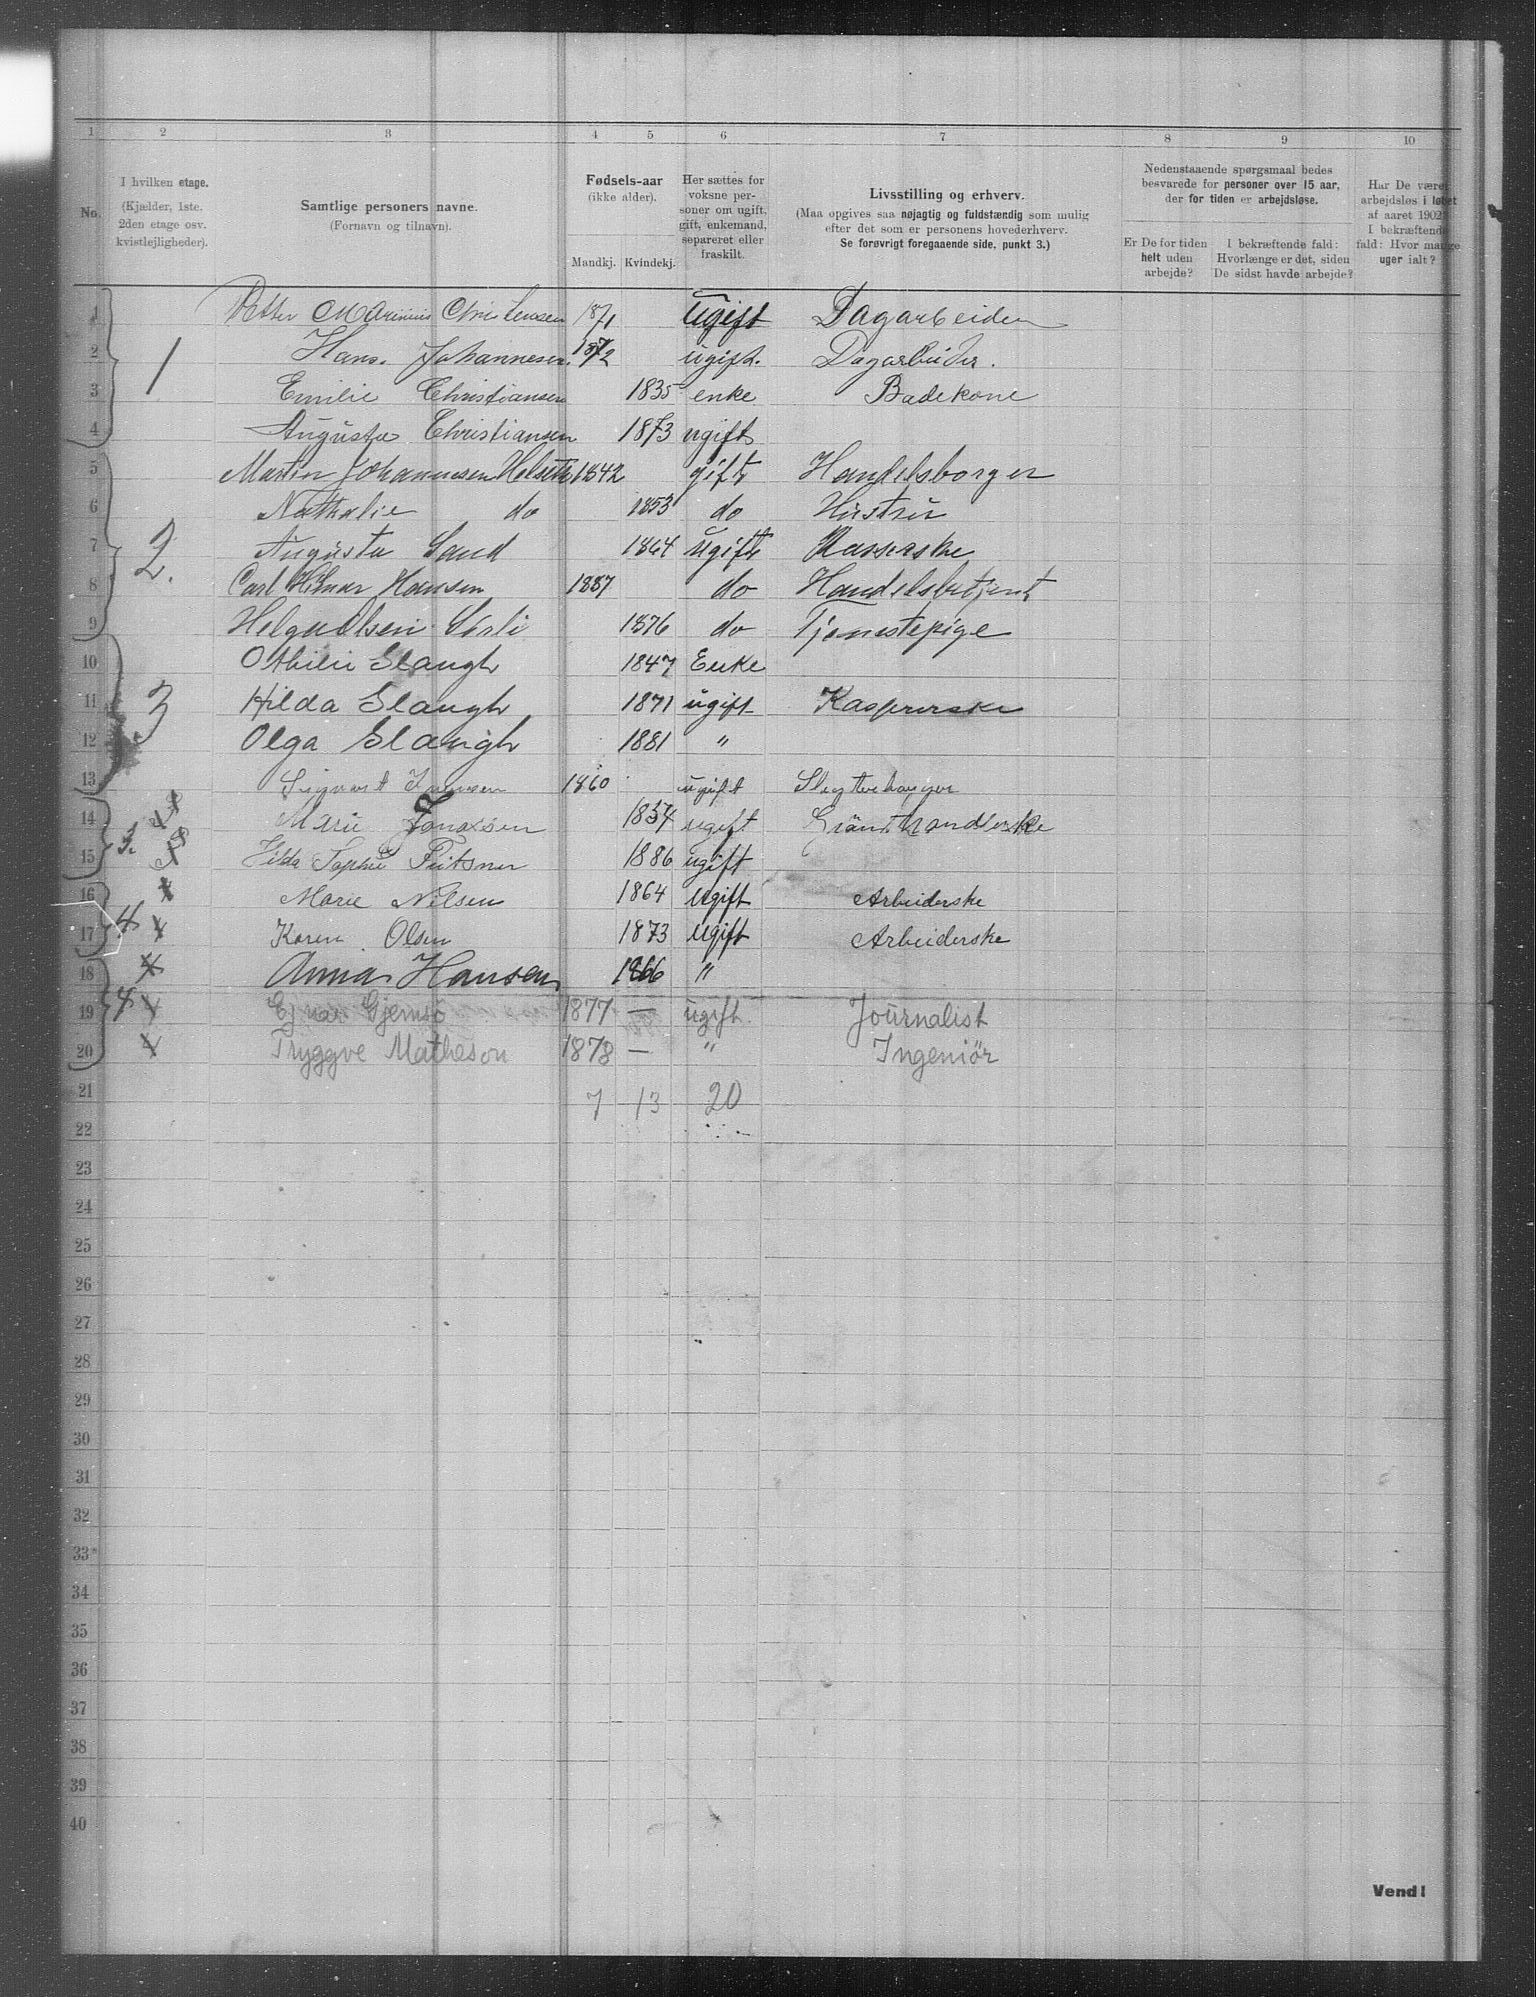 1 2 3 4 5 6 7 8 9 10
No.
I hvilken etage.
(Kjælder, 1ste.
2den etage osv.
kvistlejligheder).
Samtlige personers navne.
(Fornavn og tilnavn).
Fødsels-aar
(ikke alder).
Mandkj. Kvindekj.
Her sættes for
voksne per-
soner om ugift,
gift, enkemand,
separeret eller
fraskilt.
Livsstilling og erhverv.
(Maa opgives saa nøjagtig og fuldstændig som mulig
efter det som er personens hovederhverv.
Se forøvrigt foregaaende side, punkt 3.)
Nedenstaaende spørgsmaal bedes
besvarede for personer over 15 aar,
der for tiden er arbejdsløse.
Er De for tiden
helt uden
arbejde?
I bekræftende fald:
Hvorlænge er det, siden
De sidst havde arbejde?
Har De været
arbejdsløs i løbet
af aaret 1902?
I bekræftende
fald: Hvor mange
uger ialt?
1 Petter Marinius Christensen 1871 ugift Dagarbeider
2 1 Hans. Johannesen. 1872 ugift. Dagarbeider.
3 Emilie Christiansen 1835 enke Badekone
4 Augusta Christiansen 1873 ugift
5 Martin Johannesen Helseth 1842 gift Handelsborger
6 Nathalie do 1853 do Hustru
7 2. Augusta Sand 1864 ugift Kasserske
8 Carl Hilmar Hansen 1887 do Handelsbetjent
9 Helga Olsen Sørli 1876 do Tjenestepige
10 Othilie Slaugh 1847 Enke
11 3 Hilda Slaugh 1871 ugift Kasserske
12 Olga Slaugh 1881 "
13 Sigvart Jensen 1860 ugift
14 Marie 1837 ugift Grønthandlerske
15 3. Hilda Sophie 1886 ugift
16 Marie Nilsen 1864 ugift Arbeiderske
17 4 Karen Olsen 1873 ugift Arbeiderske
18 Anna Hansen 1866 "
19 4 Ejnar Gjemsø 1877 — ugift. Journalist
20 Tryggve Matheson 1878 — " Ingeniör
21 7 13 20
22
23
24
25
26
27
28
29
30
31
32
33
34
35
36
37
38
39
40
Vend!